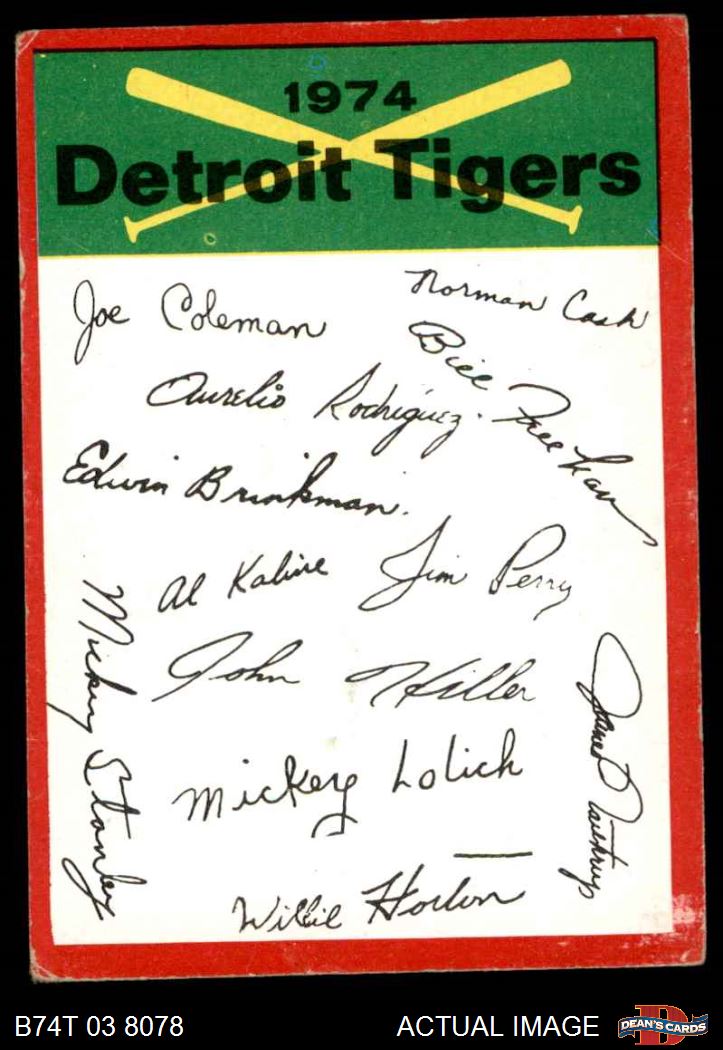 1974
Detroit Tigers
Joe Coleman
Norman Cash
Bill Freehan
Aurelio Rodriguez.
Edwin Brinkman.
Al Kaline
Jim Perry
Mickey Stanley
John Hiller
James Northrup
Mickey Lolich
Willie Horton
B74T 03 8078
ACTUAL IMAGE
D
DEAN'S CARDS